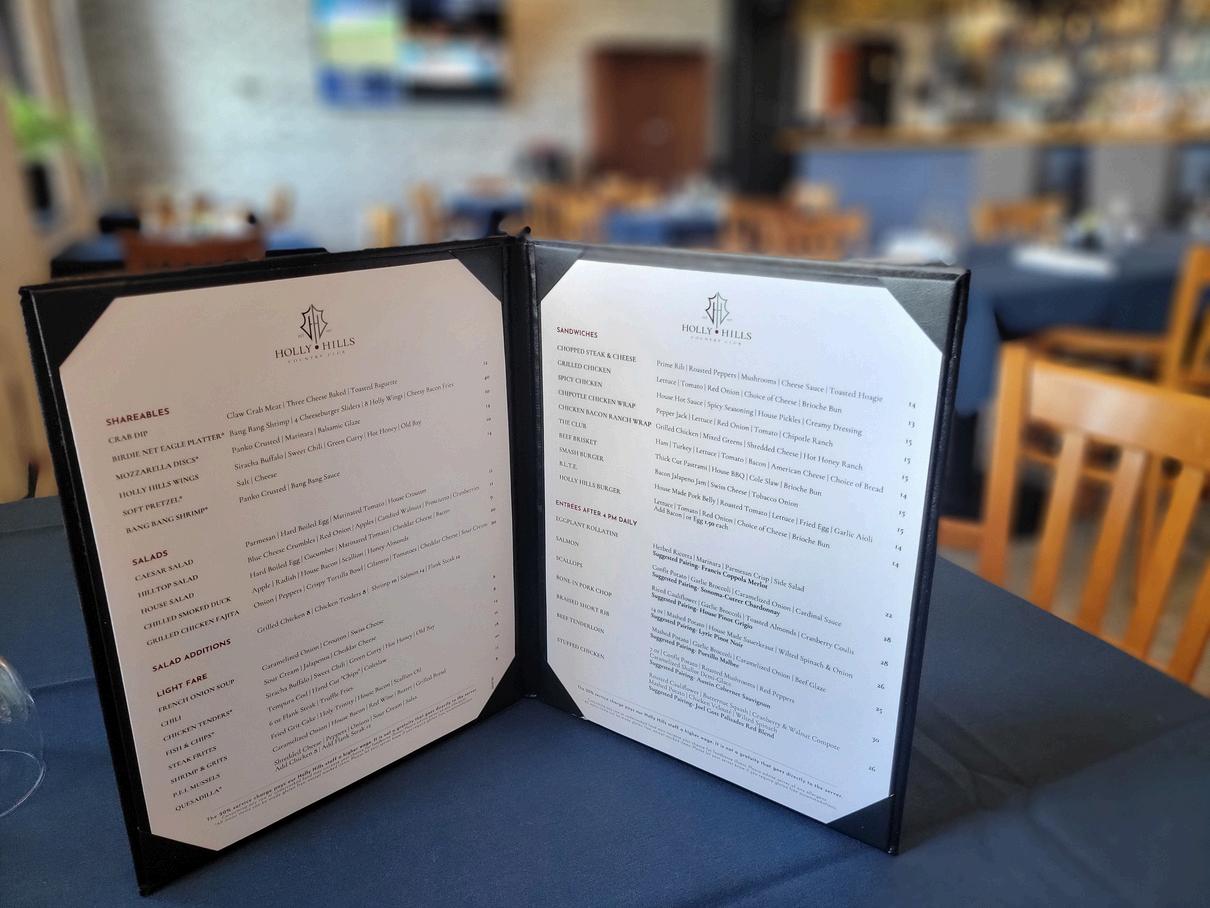 HOLLY HILLS
COUNTRY CLUB
SHAREABLES
CRAB DIP Claw Crab Meat | Three Cheese Baked | Toasted Baguette
BIRDIE NET EAGLE PLATTER* Bang Bang Shrimp | 4 Cheeseburger Sliders | 8 Holly Wings | Cheesy Bacon Fries
MOZZARELLA DISCS* Panko Crusted | Marinara | Balsamic Glaze
HOLLY HILLS WINGS Siracha Buffalo | Sweet Chili | Green Curry | Hot Honey | Old Bay
SOFT PRETZEL* Salt | Cheese
BANG BANG SHRIMP* Panko Crusted | Bang Bang Sauce
SALADS
CAESAR SALAD Parmesan | Hard Boiled Egg | Marinated Tomato | House Crouton
HILLTOP SALAD Blue Cheese Crumbles | Red Onion | Apples | Candied Walnut | Prosciutto | Cranberries
HOUSE SALAD Hard Boiled Egg | Cucumber | Marinated Tomato | Cheddar Cheese | Bacon
CHILLED SMOKED DUCK Apple | Radish | House Bacon | Scallion | Honey Almonds
GRILLED CHICKEN FAJITA Onion | Peppers | Crispy Tortilla Bowl | Cilantro | Tomatoes | Cheddar Cheese | Sour Cream
SALAD ADDITIONS Grilled Chicken 8 | Chicken Tenders 8 | Shrimp 10 | Salmon 14 | Flank Steak 12
LIGHT FARE
FRENCH ONION SOUP Caramelized Onion | Crouton | Swiss Cheese
CHILI Sour Cream | Jalapenos | Cheddar Cheese
CHICKEN TENDERS* Siracha Buffalo | Sweet Chili | Green Curry | Hot Honey | Old Bay
FISH & CHIPS* Tempura Cod | Hand Cut "Chips" | Coleslaw
STEAK FRITES 6 oz Flank Steak | Truffle Fries
SHRIMP & GRITS Fried Grit Cake | Holy Trinity | House Bacon | Scallion Oil
P.E.I. MUSSELS Caramelized Onion | House Bacon | Red Wine | Butter | Grilled Bread
QUESADILLA* Shredded Cheese | Peppers | Onions | Sour Cream | Salsa
Add Chicken 8 | Add Flank Steak 12
The 20% service charge pays our Holly Hills staff a higher wage. It is not a gratuity that goes directly to the server.
HOLLY HILLS
COUNTRY CLUB
SANDWICHES
CHOPPED STEAK & CHEESE Prime Rib | Roasted Peppers | Mushrooms | Cheese Sauce | Toasted Hoagie 14
GRILLED CHICKEN Lettuce | Tomato | Red Onion | Choice of Cheese | Brioche Bun 13
SPICY CHICKEN House Hot Sauce | Spicy Seasoning | House Pickles | Creamy Dressing 15
CHIPOTLE CHICKEN WRAP Pepper Jack | Lettuce | Red Onion | Tomato | Chipotle Ranch 15
CHICKEN BACON RANCH WRAP Grilled Chicken | Mixed Greens | Shredded Cheese | Hot Honey Ranch 15
THE CLUB Ham | Turkey | Lettuce | Tomato | Bacon | American Cheese | Choice of Bread 14
BEEF BRISKET Thick Cut Pastrami | House BBQ | Cole Slaw | Brioche Bun 15
SMASH BURGER Bacon Jalapeno Jam | Swiss Cheese | Tobacco Onion 15
B.L.T.E. House Made Pork Belly | Roasted Tomato | Lettuce | Fried Egg | Garlic Aioli 14
HOLLY HILLS BURGER Lettuce | Tomato | Red Onion | Choice of Cheese | Brioche Bun 14
Add Bacon | or Egg 1.50 each
ENTREES AFTER 4 PM DAILY
EGGPLANT ROLLATINE Herbed Ricotta | Marinara | Parmesan Crisp | Side Salad 22
Suggested Pairing- Francis Coppola Merlot
SALMON Confit Potato | Garlic Broccoli | Caramelized Onion | Cardinal Sauce 28
Suggested Pairing- Sonoma-Cutrer Chardonnay
SCALLOPS Riced Cauliflower | Garlic Broccoli | Toasted Almonds | Cranberry Coulis 28
Suggested Pairing- House Pinot Grigio
BONE-IN PORK CHOP 14 oz | Mashed Potato | House Made Sauerkraut | Wilted Spinach & Onion 26
Suggested Pairing- Lyric Pinot Noir
BRAISED SHORT RIB Mashed Potato | Garlic Broccoli | Caramelized Onion | Beef Glaze 25
Suggested Pairing- Portillo Malbec
BEEF TENDERLOIN 7 oz | Confit Potato | Roasted Mushrooms | Red Peppers 30
Caramelized Shallot Demi-Glaze
Suggested Pairing- Austin Cabernet Sauvignon
STUFFED CHICKEN Roasted Cauliflower | Butternut Squash | Cranberry & Walnut Compote 26
Mashed Potato | Chicken Velouté | Wilted Spinach
Suggested Pairing- Joel Gott Palisades Red Blend
The 20% service charge pays our Holly Hills staff a higher wage. It is not a gratuity that goes directly to the server.